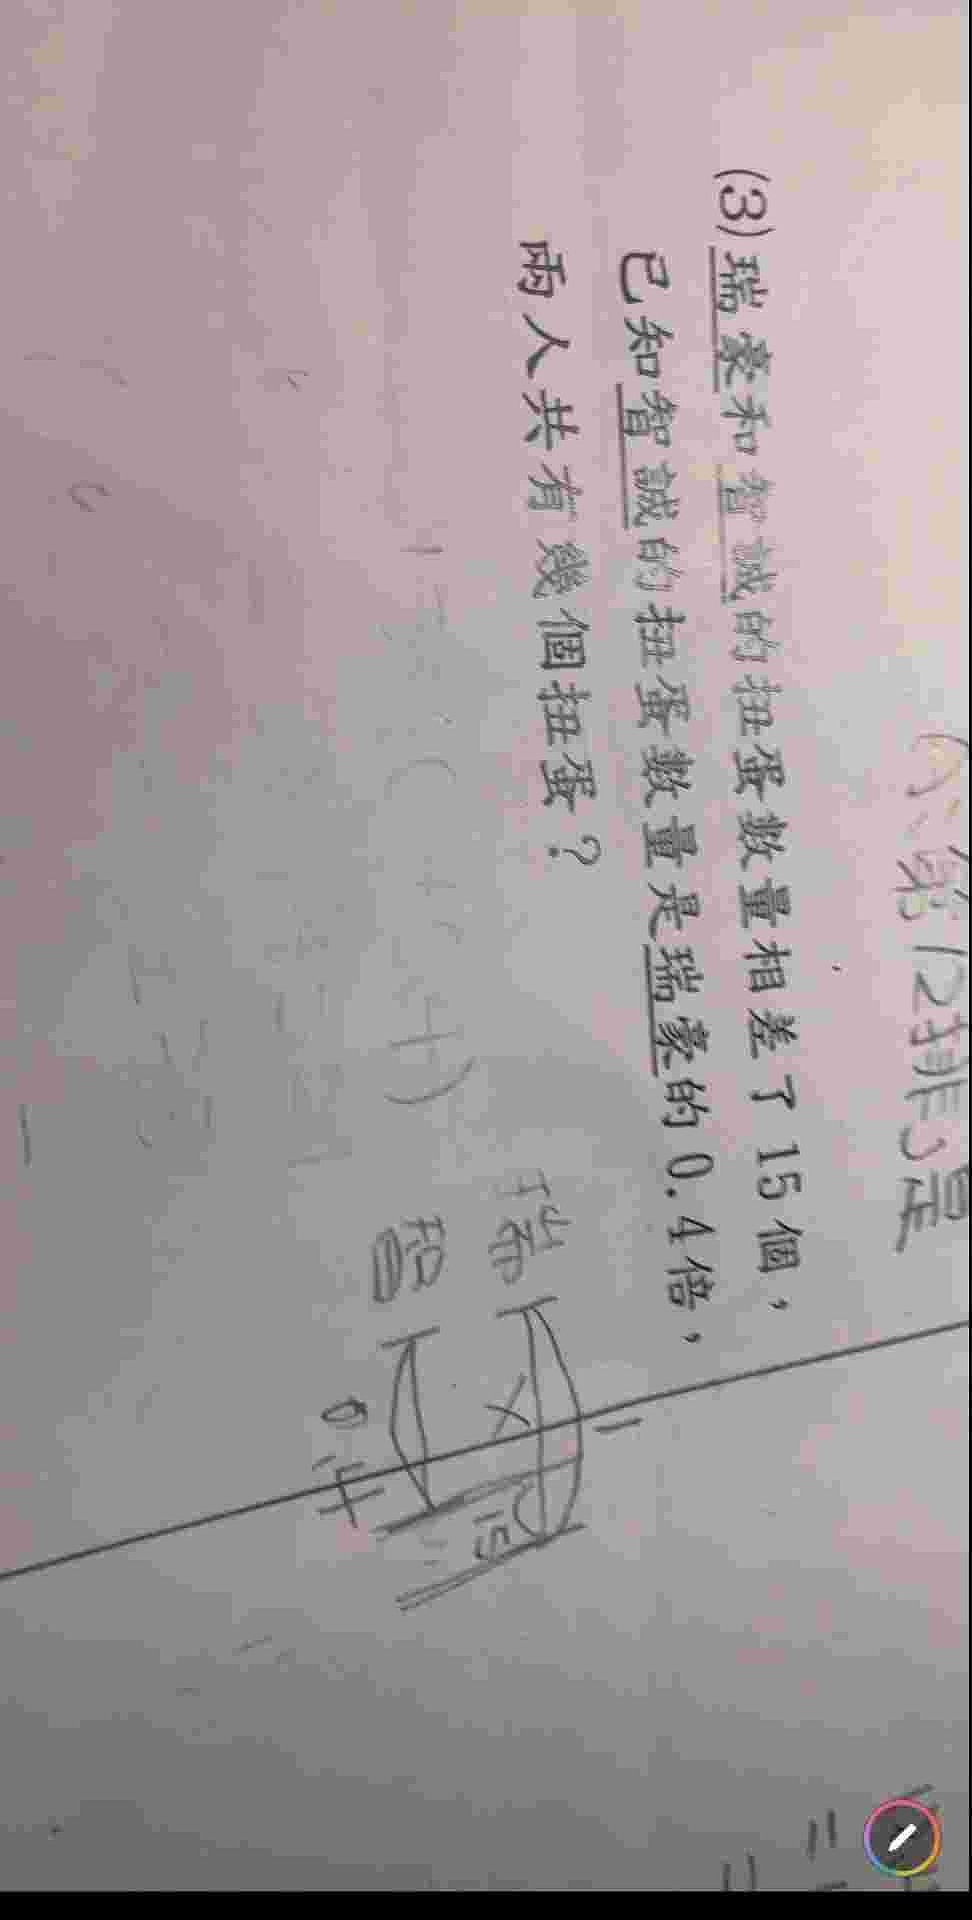 (3)瑞豪和智誠的扭蛋數量相差了15個，
已知智誠的扭蛋數量是瑞豪的0.4倍，
兩人共有幾個扭蛋？
第12排3星
瑞
1
X
15
智
0.4